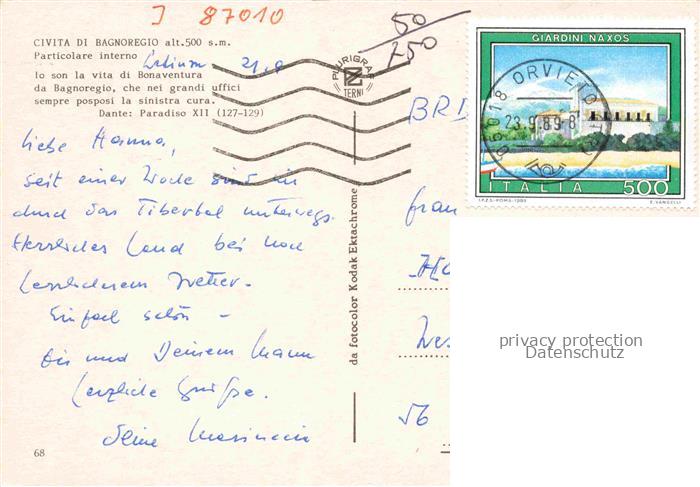 J 87010
50
250
CIVITA DI BAGNOREGIO alt.500 s.m.
Particolare interno
Latium 21.9
Io son la vita di Bonaventura
da Bagnoregio, che nei grandi uffici
sempre posposi la sinistra cura.
Dante: Paradiso XII (127-129)
PLURIGRAF
TERNI
GIARDINI NAXOS
05018 ORVIETO (TR)
23.9.89-8
ITALIA 500
I.P.Z.S.-ROMA-1989
E. VANGELLI
BRD
Liebe Hanna,
seit einer Woche sind wir
durch das Tibertal unterwegs.
Herrliches Land bei noch
herrlicherem Wetter.
Einfach schön –
Dir und Deinem Mann
herzliche Grüße.
Deine
Frau
Wes
56
da fotocolor Kodak Ektachrome
68
privacy protection
Datenschutz